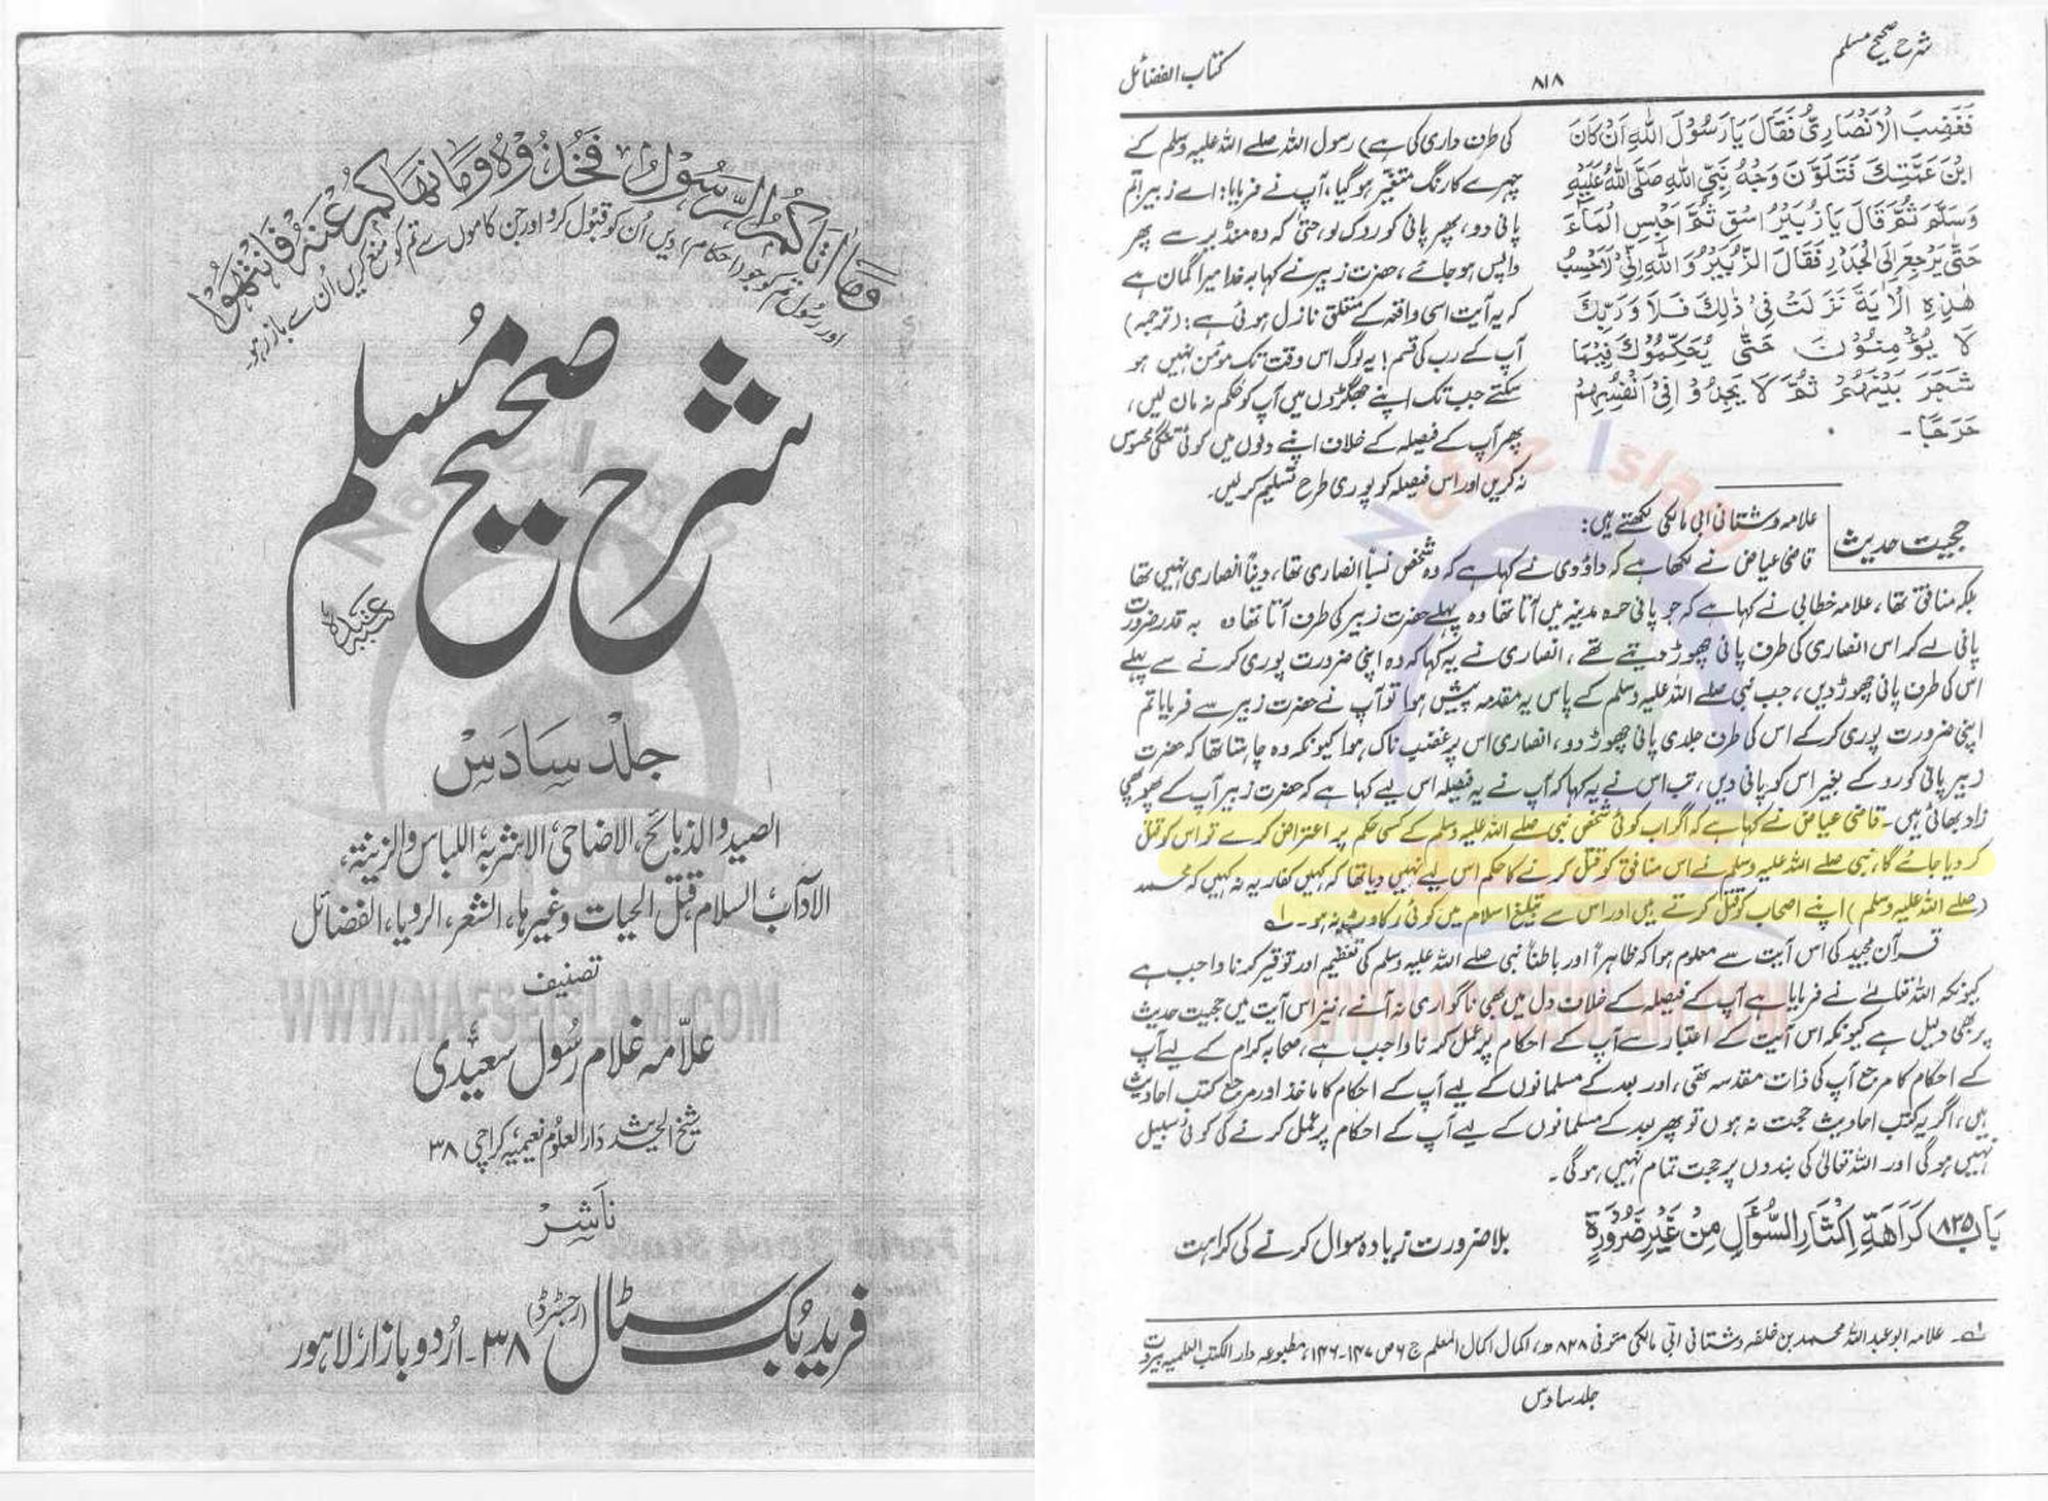 وَمَا اٰتَاكُمُ الرَّسُوْلُ فَخُذُوْهُ وَمَا نَهَاكُمْ عَنْهُ فَانْتَهُوْا
اور رسول تم کو جو (احکام) دیں اُن کو قبول کرو اور جن کاموں سے تم کو منع کریں اُن سے باز رہو
شرح صحیح مُسلم
جلد سَادَسْ
الصید والذبائح، الاضاحی، الاشربۃ، اللباس والزینۃ،
الآداب، السلام، قتل الحیات وغیرہا، الشعر، الرویا، الفضائل
تصنیف
WWW.NAFSEISLAM.COM
علّامہ غلام رسُول سعیدی
شیخ الحدیث دارالعلوم نعیمیہ کراچی ۳۸
ناشر
فرید بُک سٹال (رجسٹرڈ) ۳۸-اُردو بازار، لاہور
شرح صحیح مسلم
۸۱۸
کتاب الفضائل
فَغَضِبَ الْاَنْصَارِیُّ فَقَالَ یَا رَسُوْلَ اللّٰہِ اَنْ کَانَ
ابْنَ عَمَّتِکَ فَتَلَوَّنَ وَجْہُ نَبِیِّ اللّٰہِ صَلَّی اللّٰہُ عَلَیْہِ
وَسَلَّمَ ثُمَّ قَالَ یَا زُبَیْرُ اسْقِ ثُمَّ احْبِسِ الْمَاءَ
حَتّٰی یَرْجِعَ اِلَی الْجَدْرِ فَقَالَ الزُّبَیْرُ وَاللّٰہِ اِنِّیْ لَاَحْسِبُ
ھٰذِہِ الْاٰیَۃَ نَزَلَتْ فِیْ ذٰلِکَ فَلَا وَرَبِّکَ
لَا یُؤْمِنُوْنَ حَتّٰی یُحَکِّمُوْکَ فِیْمَا
شَجَرَ بَیْنَھُمْ ثُمَّ لَا یَجِدُوْا فِیْ اَنْفُسِھِمْ
حَرَجًا۔
کی طرف داری کی ہے) رسول اللہ صلے اللہ علیہ وسلم کے
چہرے کا رنگ متغیر ہو گیا، آپ نے فرمایا: اے زبیر! تم
پانی دو، پھر پانی کو روک لو، حتیٰ کہ وہ منڈیر سے پھر
واپس ہو جائے، حضرت زبیر نے کہا بہ خدا میرا گمان ہے
کہ یہ آیت اسی واقعہ کے متعلق نازل ہوئی ہے: (ترجمہ)
آپ کے رب کی قسم! یہ لوگ اس وقت تک مومن نہیں ہو
سکتے جب تک اپنے جھگڑوں میں آپ کو حکم نہ مان لیں،
پھر آپ کے فیصلہ کے خلاف اپنے دلوں میں کوئی تنگی محسوس
نہ کریں اور اس فیصلہ کو پوری طرح تسلیم کر لیں۔
حجیت حدیث
علامہ وشتانی ابی مالکی لکھتے ہیں:
قاضی عیاض نے لکھا ہے کہ داؤدی نے کہا ہے کہ وہ شخص نسباً انصاری تھا، دیناً انصاری نہیں تھا
بلکہ منافق تھا، علامہ خطابی نے کہا ہے کہ جو پانی حرہ مدینہ میں آتا تھا وہ پہلے حضرت زبیر کی طرف آتا تھا وہ بہ قدر ضرورت
پانی لے کر اس انصاری کی طرف پانی چھوڑ دیتے تھے، انصاری نے یہ کہا کہ وہ اپنی ضرورت پوری کرنے سے پہلے
اس کی طرف پانی چھوڑ دیں، جب نبی صلے اللہ علیہ وسلم کے پاس یہ مقدمہ پیش ہوا تو آپ نے حضرت زبیر سے فرمایا تم
اپنی ضرورت پوری کر کے اس کی طرف جلدی پانی چھوڑ دو، انصاری اس پر غضب ناک ہوا کیونکہ وہ چاہتا تھا کہ حضرت
زبیر پانی کو روکے بغیر اس کو پانی دیں، تب اس نے یہ کہا کہ آپ نے یہ فیصلہ اس لیے کہا ہے کہ حضرت زبیر آپ کے پھوپھی
زاد بھائی ہیں۔ قاضی عیاض نے کہا ہے کہ اگر اب کوئی شخص نبی صلے اللہ علیہ وسلم کے کسی حکم پر اعتراض کرے تو اس کو قتل
کر دیا جائے گا، نبی صلے اللہ علیہ وسلم نے اس منافق کو قتل کرنے کا حکم اس لیے نہیں دیا تھا کہ کہیں کفار یہ نہ کہیں کہ محمد
(صلے اللہ علیہ وسلم) اپنے اصحاب کو قتل کرتے ہیں اور اس سے تبلیغ اسلام میں کوئی رکاوٹ نہ ہو۔ لہ
قرآن مجید کی اس آیت سے معلوم ہوا کہ ظاہراً اور باطناً نبی صلے اللہ علیہ وسلم کی تعظیم اور توقیر کرنا واجب ہے
کیونکہ اللہ تعالیٰ نے فرمایا ہے آپ کے فیصلہ کے خلاف دل میں بھی ناگواری نہ آنے، نیز اس آیت میں حجیت حدیث
پر بھی دلیل ہے کیونکہ اس آیت کے اعتبار سے آپ کے احکام پر عمل کرنا واجب ہے، صحابہ کرام کے لیے آپ
کے احکام کا مرجع آپ کی ذات مقدسہ تھی، اور بعد کے مسلمانوں کے لیے آپ کے احکام کا ماخذ اور مرجع کتب احادیث
ہیں، اگر یہ کتب احادیث حجت نہ ہوں تو پھر بعد کے مسلمانوں کے لیے آپ کے احکام پر عمل کرنے کی کوئی سبیل
نہیں ہو گی اور اللہ تعالیٰ کی بندوں پر حجت تمام نہیں ہو گی۔
بَاب ۸۲۵ کَرَاھَۃِ اِکْثَارِ السُّؤَالِ مِنْ غَیْرِ ضَرُوْرَۃٍ
بلا ضرورت زیادہ سوال کرنے کی کراہت
لہ۔ علامہ ابو عبداللہ محمد بن خلفہ وشتانی ابی مالکی متوفی ۸۲۸ھ، اکمال اکمال المعلم ج ۶ ص ۱۴۷-۱۴۶، مطبوعہ دار الکتب العلمیہ بیروت
جلد سادس